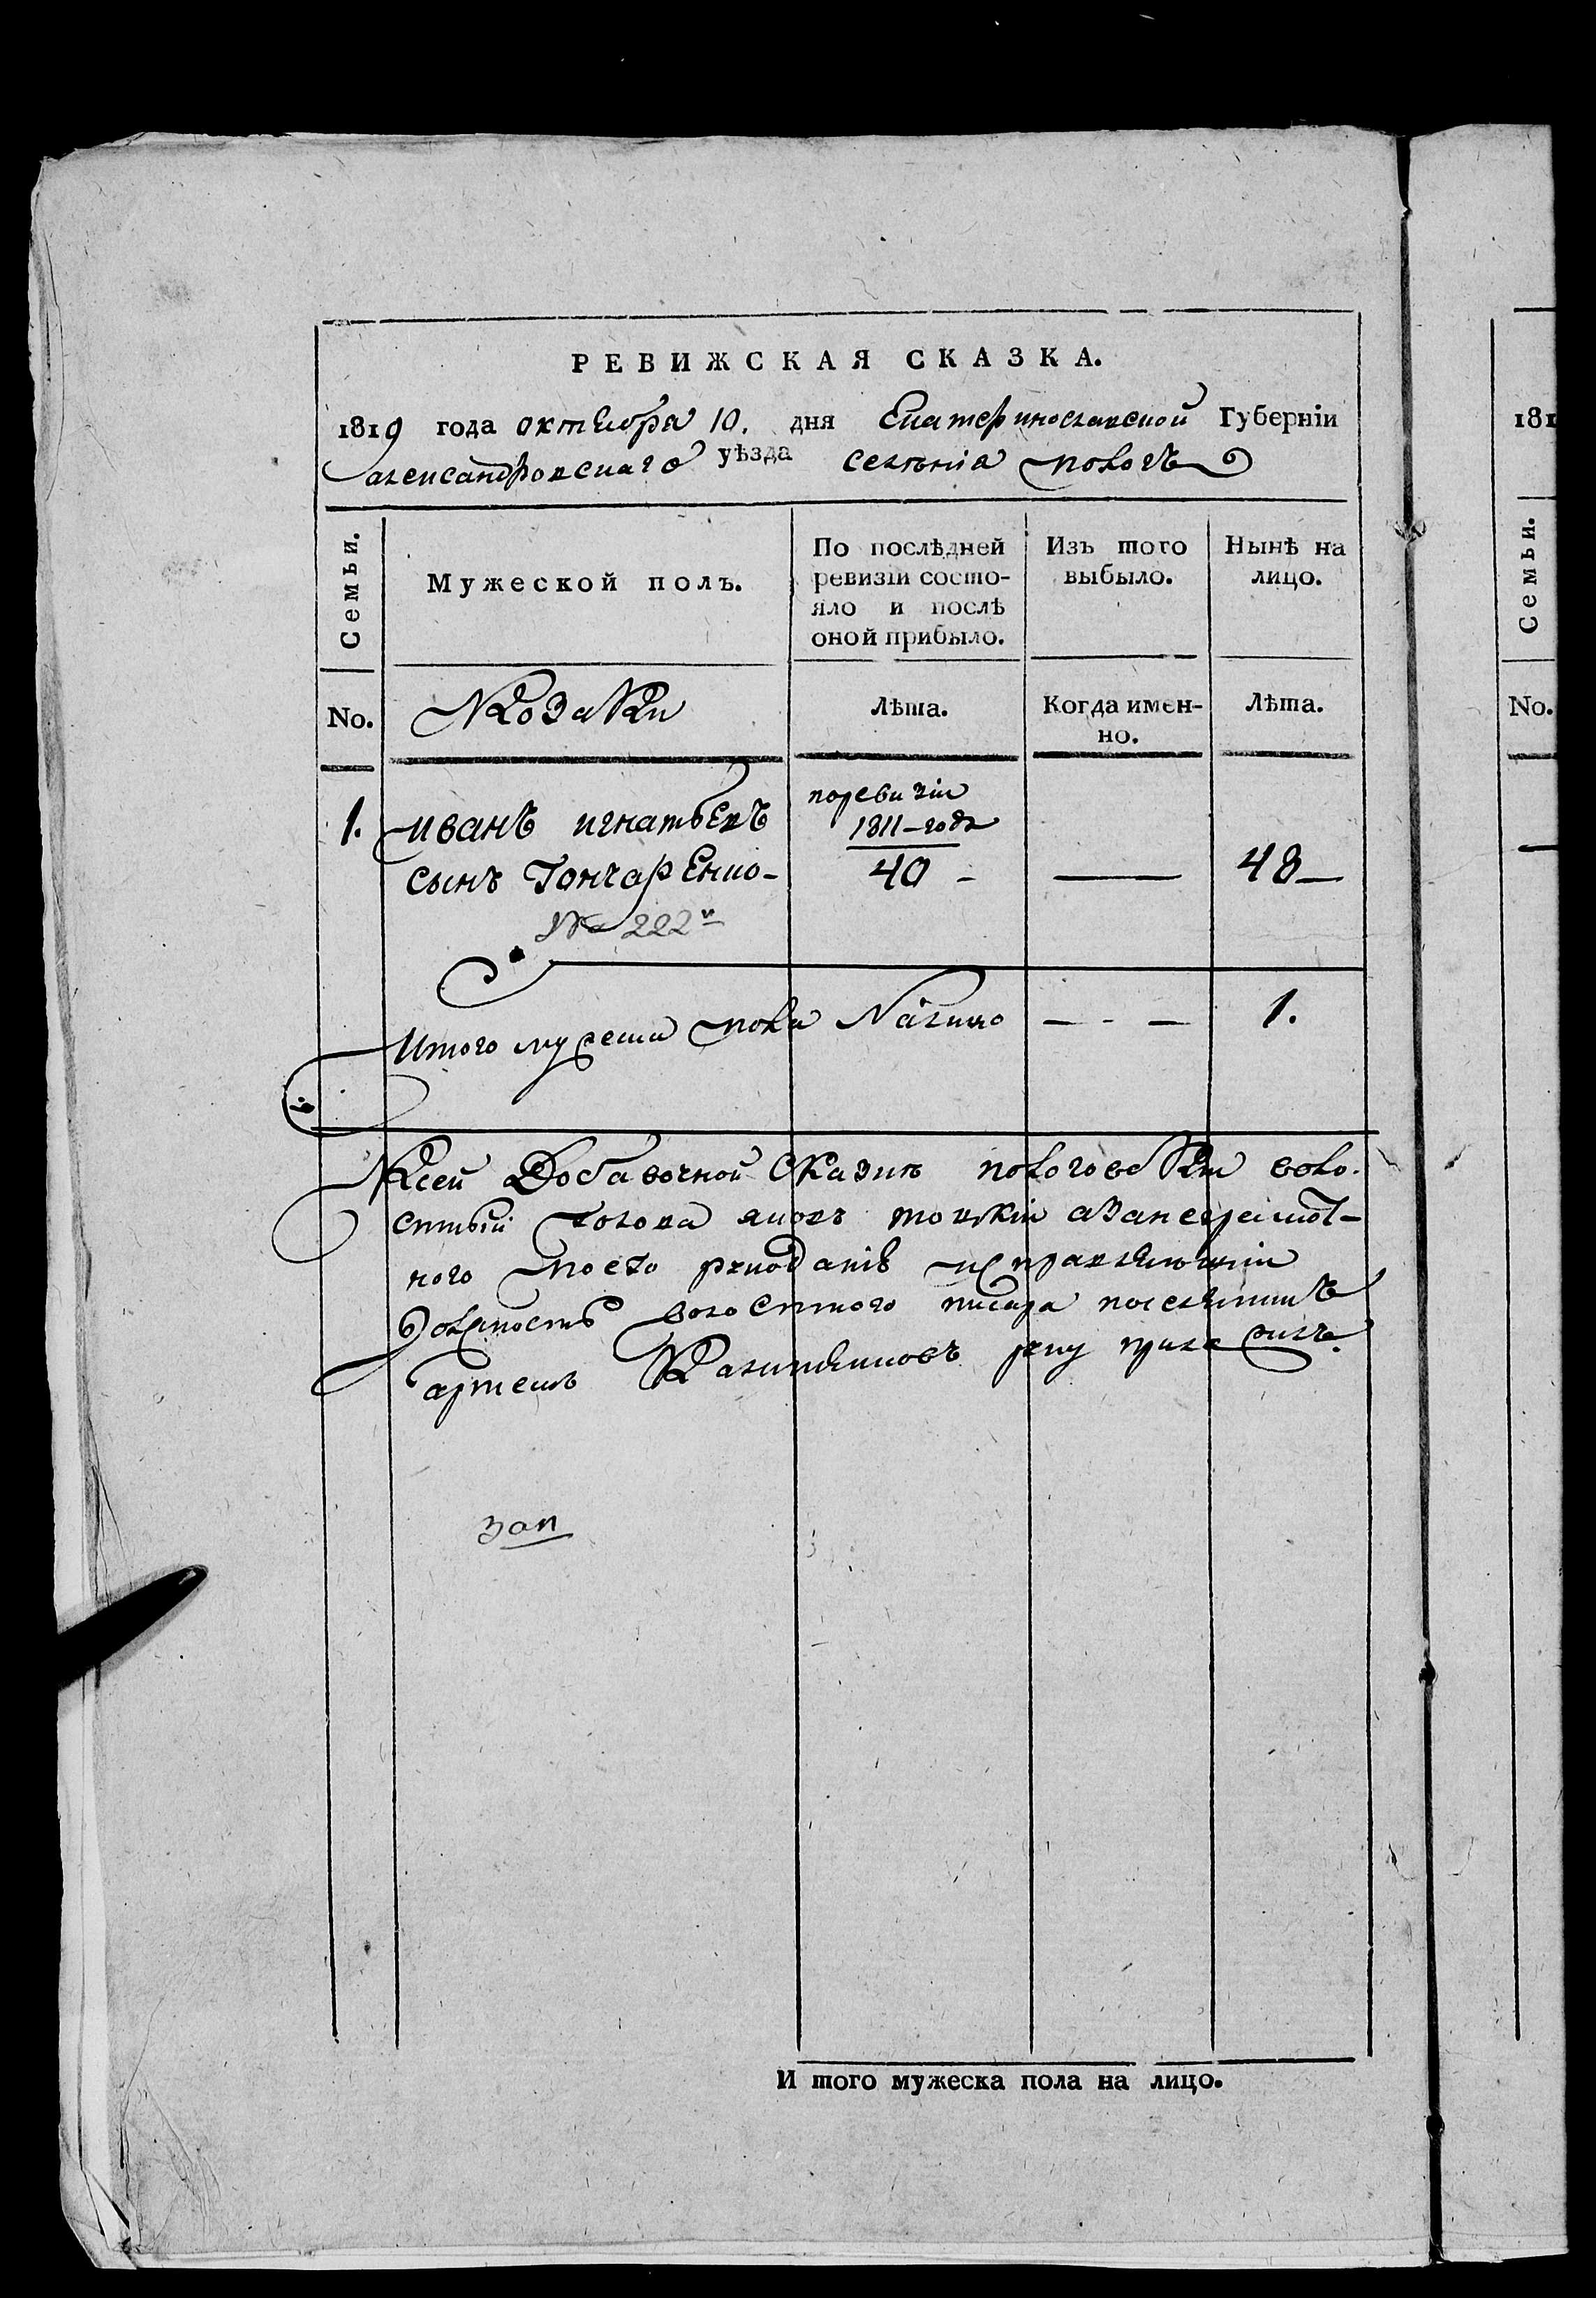 РЕВИЖСКАЯ СКАЗКА.
1819 года октября 10. дня Екатеринославской Губерніи
александровскаго уѣзда селѣнія пологъ
Семьи.
Мужеской полъ.
По послѣдней ревизіи состояло и послѣ оной прибыло.
Изъ того выбыло.
Нынѣ на лицо.
No.
Козаки
Лѣта.
Когда именно.
Лѣта.
1.
иванъ игнатьевъ
сынъ Гончаренко
№ 222й
поревизіи
1811-года
40 -
48
Итого мужеска пола Налицо — - — 1.
Ксей Добавочной Сказки пологовской воло-
стный голова яковъ аЗанеграмот-
ного поего рукоданіѣ исправляющій
Должность волостного писара поселянинъ
артемъ Калиниковъ руку приложилъ
зап
И того мужеска пола на лицо.
181
Семьи.
No.